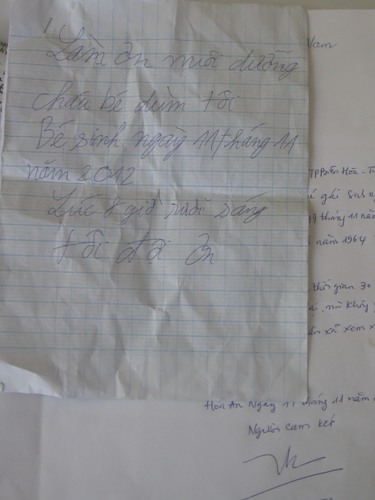 Làm ơn nuôi dưỡng
cháu bé dùm tôi
Bé sinh ngày 11 tháng 11
năm 2012
Lúc 8 giờ rưỡi sáng
tôi đội ơn
Nam
TP Biên Hòa - T
gái sinh n
19 tháng 11 năm
năm 1964
thời gian 30
nữ không
xã xem x
Hòa An Ngày 11 tháng 11 năm
Người cam kết